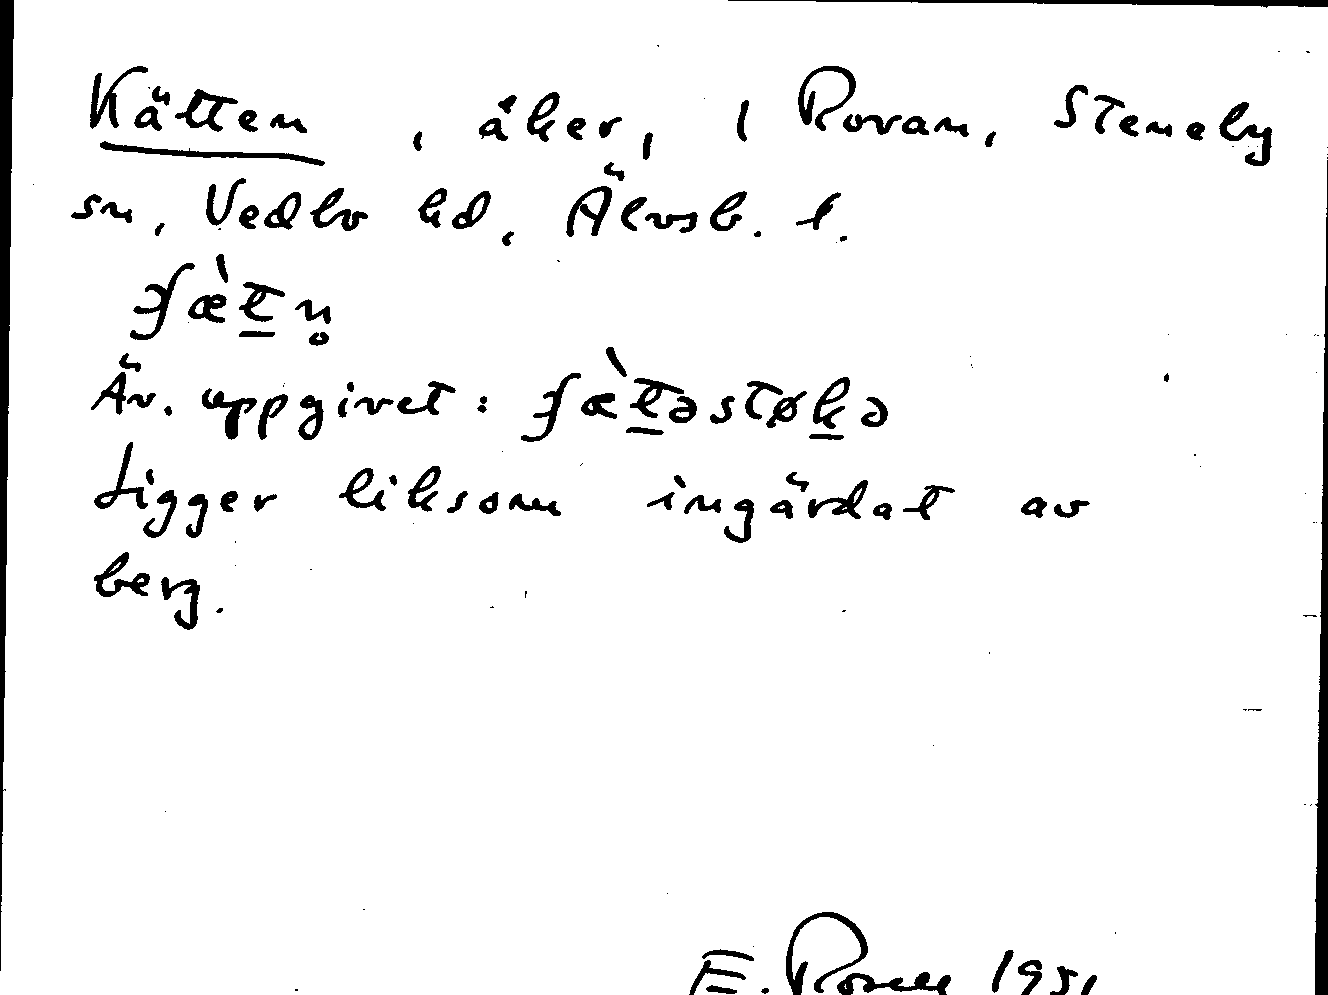 Kätten, åker, 1 Rovan, Steneby
sn, Vedbo hd, Älvsb. l.
ʄæ̀t̲n̥
Äv. uppgivet: ʄæ̀t̲əstøk̲ə
Ligger liksom ingärdat av
berg.
E. 1951